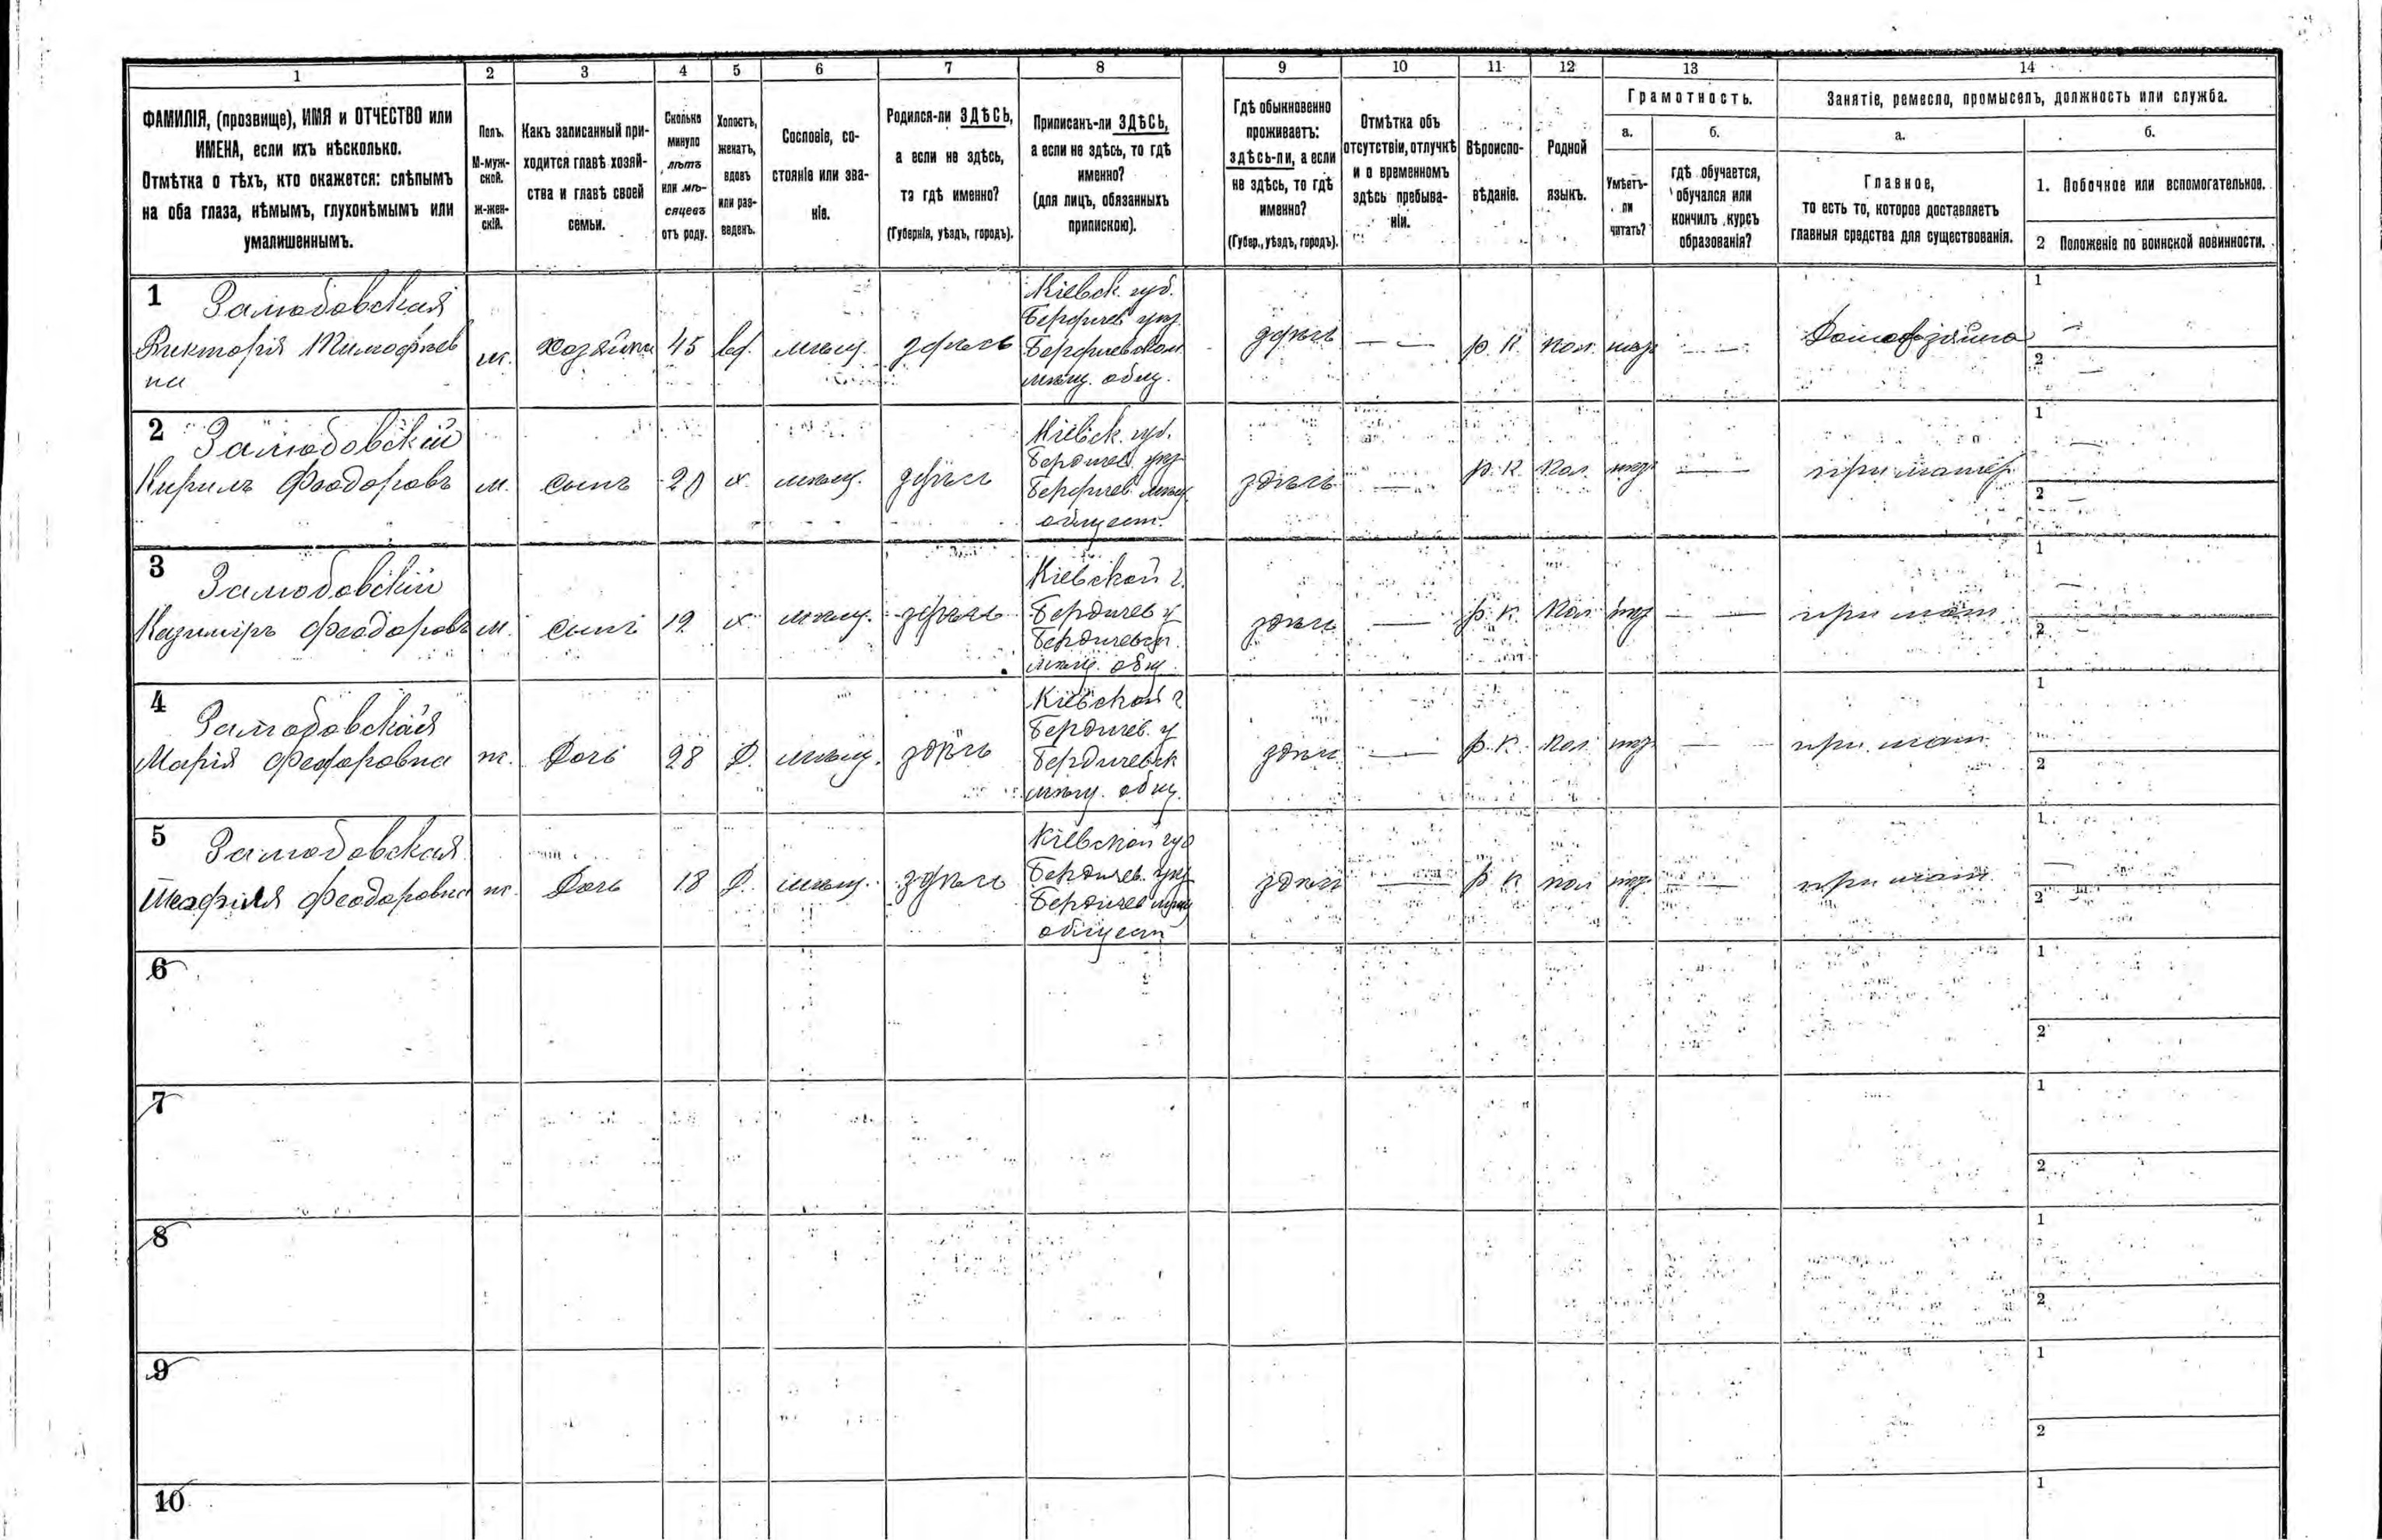 1 2 3 4 5 6 7 8 9 10 11 12 13 14
ФАМИЛІЯ, (прозвище), ИМЯ и ОТЧЕСТВО или
ИМЕНА, если ихъ нѣсколько.
Отмѣтка о тѣхъ, кто окажется: слѣпымъ
на оба глаза, нѣмымъ, глухонѣмымъ или
умалишеннымъ.
Полъ.
М-муж-
ской.
Ж-жен-
скій.
Какъ записанный при-
ходится главѣ хозяй-
ства и главѣ своей
семьи.
Сколько
минуло
лѣтъ
или мѣ-
сяцевъ
отъ роду.
Холостъ,
женатъ,
вдовъ
или раз-
веденъ.
Сословіе, со-
стояніе или зва-
ніе.
Родился-ли ЗДѢСЬ,
а если не здѣсь,
то гдѣ именно?
(Губернія, уѣздъ, городъ).
Приписанъ-ли ЗДѢСЬ,
а если не здѣсь, то гдѣ
именно?
(для лицъ, обязанныхъ
припискою).
Гдѣ обыкновенно
проживаетъ:
здѣсь-ли, а если
не здѣсь, то гдѣ
именно?
(Губер., уѣздъ, городъ).
Отмѣтка объ
отсутствіи, отлучкѣ
и о временномъ
здѣсь пребыва-
ніи.
Вѣроиспо-
вѣданіе.
Родной
языкъ.
Грамотность.
а.
Умѣетъ-
ли
читать?
б.
гдѣ обучается,
обучался или
кончилъ курсъ
образованія?
Занятіе, ремесло, промыселъ, должность или служба.
а.
Главное,
то есть то, которое доставляетъ
главныя средства для существованія.
б.
1. Побочное или вспомогательное.
2 Положеніе по воинской повинности.
1 Замодовская
Викторія Тимофѣев
на
ж. хозяйка 45 вд. мѣщ. здѣсь
Кіевск. губ.
Бердичев. уѣз.
Бердичевском
мѣщ. общ.
здѣсь — — р. К. пол.
1 —
2 —
2 Замодовскій
Кирилъ Феодоровъ
м. сынъ 20 х. мѣщ. здѣсь
Кіевск. губ.
Бердичев. уѣз.
Бердичев. мѣщ.
общест.
здѣсь — р. К. пол. — при матер.
1 —
2 —
3 Замодовскій
Казиміръ Феодоровъ
м. сынъ 19 х. мѣщ. здѣсь
Кіевской г.
Бердичев. у.
Бердичевск.
мѣщ. общ.
здѣсь — р. К. пол. — — при мат.
1 —
2
4 Замодовская
Марія Феодоровна
ж. Дочь 28 Д. мѣщ. здѣсь
Кіевской г.
Бердичев. у.
Бердичевск.
мѣщ. общ.
здѣсь — р. К. пол. — — при мат.
1
2
5 Замодовская
Феодоровна
ж. Дочь 18 Д. мѣщ. здѣсь
Кіевской губ
Бердичев. уѣз.
Бердичев. мѣщ.
общест
здѣсь — р. К. пол — при мат.
1 —
2
6 1
2
7 1
2
8 1
2
9 1
2
10 1